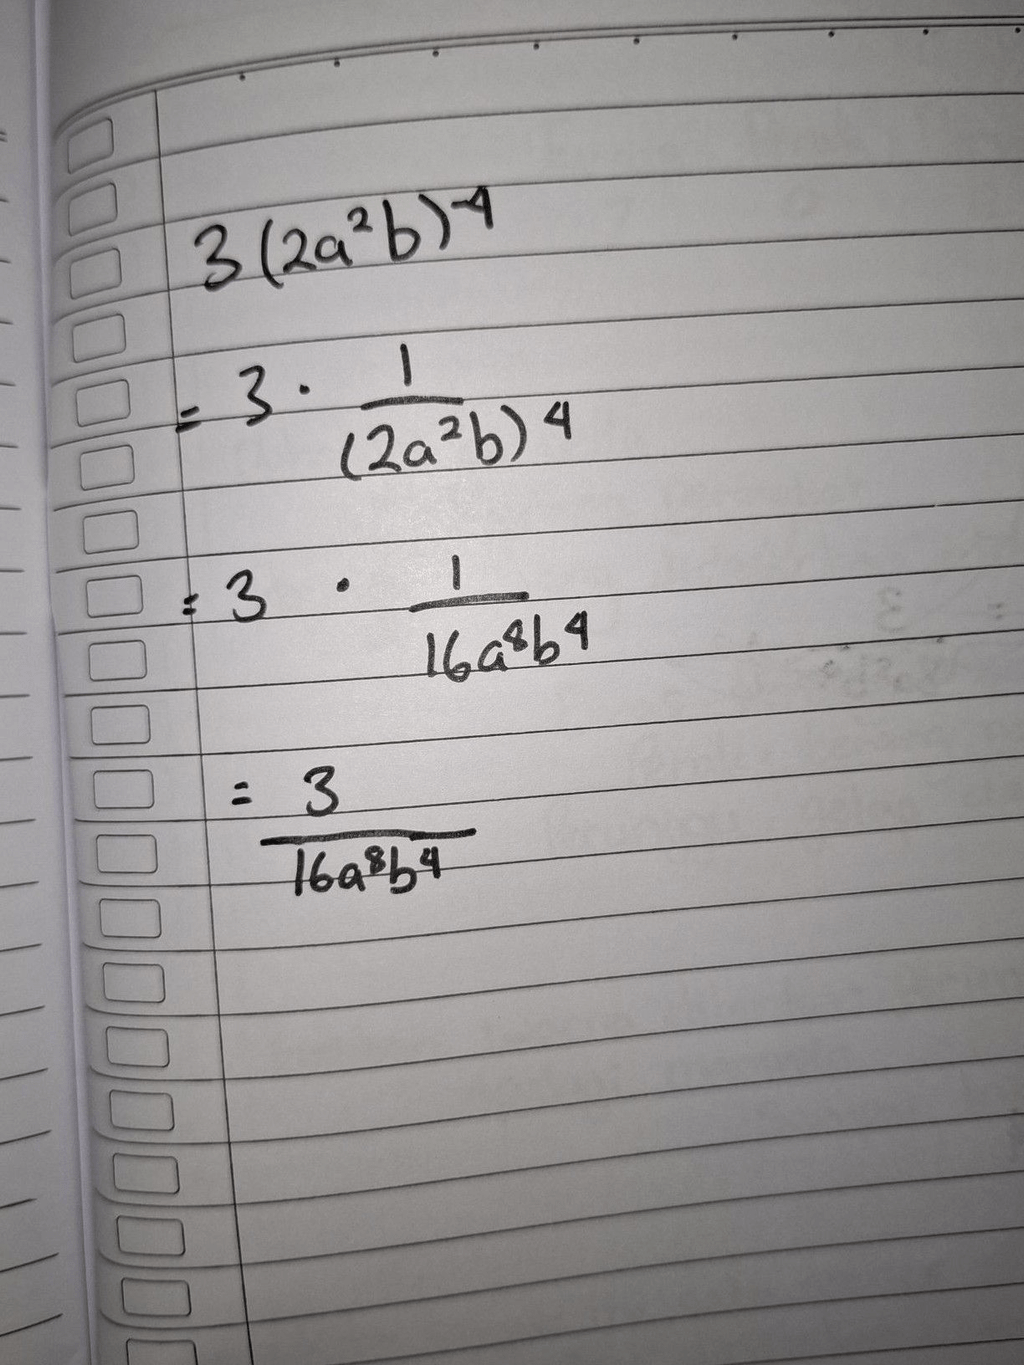 3(2a²b)⁻⁴
= 3 · 1/(2a²b)⁴
= 3 · 1/16a⁸b⁴
= 3/16a⁸b⁴